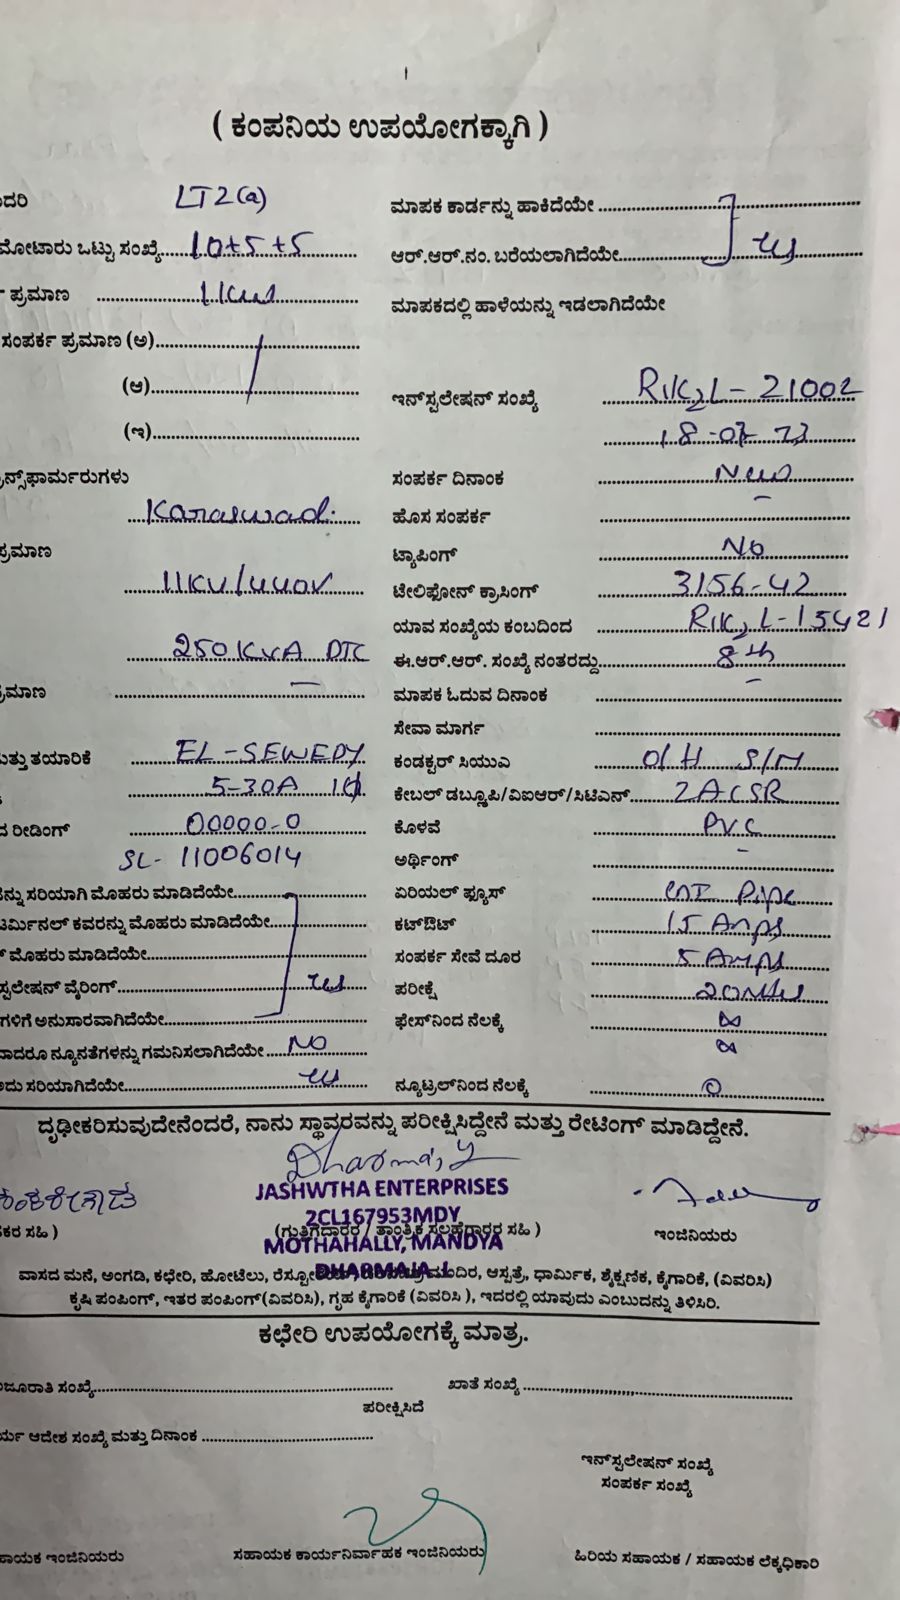 ( ಕಂಪನಿಯ ಉಪಯೋಗಕ್ಕಾಗಿ )
ದರಿ LT2(a)
ಮೋಟಾರು ಒಟ್ಟು ಸಂಖ್ಯೆ 10+5+5
ಪ್ರಮಾಣ 1KW
ಸಂಪರ್ಕ ಪ್ರಮಾಣ (ಅ)
(ಆ)
(ಇ)
ನ್ಸ್‌ಫಾರ್ಮರುಗಳು
Karaswadi
ಪ್ರಮಾಣ
11KV/440V
250KVA DTC
ಪ್ರಮಾಣ –
ಮತ್ತು ತಯಾರಿಕೆ EL-SEWEDY
5-30A 1ϕ
ದ ರೀಡಿಂಗ್ 00000-0
SL- 11006014
ನ್ನು ಸರಿಯಾಗಿ ಮೊಹರು ಮಾಡಿದೆಯೇ
ಟರ್ಮಿನಲ್ ಕವರನ್ನು ಮೊಹರು ಮಾಡಿದೆಯೇ
ಮೊಹರು ಮಾಡಿದೆಯೇ
ಸ್ಟಲೇಷನ್ ವೈರಿಂಗ್ yes
ಗಳಿಗೆ ಅನುಸಾರವಾಗಿದೆಯೇ
ವಾದರೂ ನ್ಯೂನತೆಗಳನ್ನು ಗಮನಿಸಲಾಗಿದೆಯೇ NO
ಅದು ಸರಿಯಾಗಿದೆಯೇ yes
ಮಾಪಕ ಕಾರ್ಡನ್ನು ಹಾಕಿದೆಯೇ
ಆರ್.ಆರ್.ನಂ. ಬರೆಯಲಾಗಿದೆಯೇ yes
ಮಾಪಕದಲ್ಲಿ ಹಾಳೆಯನ್ನು ಇಡಲಾಗಿದೆಯೇ
ಇನ್‌ಸ್ಟಲೇಷನ್ ಸಂಖ್ಯೆ RIK2L-21002
18-07-
ಸಂಪರ್ಕ ದಿನಾಂಕ New
ಹೊಸ ಸಂಪರ್ಕ –
ಟ್ಯಾಪಿಂಗ್ No
ಟೇಲಿಫೋನ್ ಕ್ರಾಸಿಂಗ್ 3156-42
ಯಾವ ಸಂಖ್ಯೆಯ ಕಂಬದಿಂದ RIK2L-15421
ಈ.ಆರ್.ಆರ್. ಸಂಖ್ಯೆ ನಂತರದ್ದು 8th
ಮಾಪಕ ಓದುವ ದಿನಾಂಕ –
ಸೇವಾ ಮಾರ್ಗ
ಕಂಡಕ್ಟರ್ ಸಿಯುಎ O/H S/M
ಕೇಬಲ್ ಡಬ್ಲ್ಯೂಪಿ/ವಿಐಆರ್/ಸಿಟಿಎಸ್ 2ACSR
ಕೊಳವೆ PVC
ಅರ್ಥಿಂಗ್ –
ಏರಿಯಲ್ ಫ್ಯೂಸ್ Pipe
ಕಟ್‌ಔಟ್ 15 Amps
ಸಂಪರ್ಕ ಸೇವೆ ದೂರ 5 Amps
ಪರೀಕ್ಷೆ
ಫೇಸ್‌ನಿಂದ ನೆಲಕ್ಕೆ ∞
∞
ನ್ಯೂಟ್ರಲ್‌ನಿಂದ ನೆಲಕ್ಕೆ 0
ದೃಢೀಕರಿಸುವುದೇನೆಂದರೆ, ನಾನು ಸ್ಥಾವರವನ್ನು ಪರೀಕ್ಷಿಸಿದ್ದೇನೆ ಮತ್ತು ರೇಟಿಂಗ್ ಮಾಡಿದ್ದೇನೆ.
JASHWTHA ENTERPRISES
2CL167953MDY
ಕರ ಸಹಿ ) (ಗುತ್ತಿಗೆದಾರರ / ತಾಂತ್ರಿಕ ಸಲಹೆಗಾರರ ಸಹಿ ) ಇಂಜಿನಿಯರು
MOTHAHALLY, MANDYA
DHARMAJA. L
ವಾಸದ ಮನೆ, ಅಂಗಡಿ, ಕಛೇರಿ, ಹೋಟೆಲು, ಮಂದಿರ, ಆಸ್ಪತ್ರೆ, ಧಾರ್ಮಿಕ, ಶೈಕ್ಷಣಿಕ, ಕೈಗಾರಿಕೆ, (ವಿವರಿಸಿ)
ಕೃಷಿ ಪಂಪಿಂಗ್, ಇತರ ಪಂಪಿಂಗ್(ವಿವರಿಸಿ), ಗೃಹ ಕೈಗಾರಿಕೆ (ವಿವರಿಸಿ ), ಇದರಲ್ಲಿ ಯಾವುದು ಎಂಬುದನ್ನು ತಿಳಿಸಿರಿ.
ಕಛೇರಿ ಉಪಯೋಗಕ್ಕೆ ಮಾತ್ರ.
ಜೂರಾತಿ ಸಂಖ್ಯೆ ಖಾತೆ ಸಂಖ್ಯೆ
ಪರೀಕ್ಷಿಸಿದೆ
ರ್ಯ ಆದೇಶ ಸಂಖ್ಯೆ ಮತ್ತು ದಿನಾಂಕ
ಇನ್‌ಸ್ಟಲೇಷನ್ ಸಂಖ್ಯೆ
ಸಂಪರ್ಕ ಸಂಖ್ಯೆ
ಹಾಯಕ ಇಂಜಿನಿಯರು ಸಹಾಯಕ ಕಾರ್ಯನಿರ್ವಾಹಕ ಇಂಜಿನಿಯರು ಹಿರಿಯ ಸಹಾಯಕ / ಸಹಾಯಕ ಲೆಕ್ಕಧಿಕಾರಿ